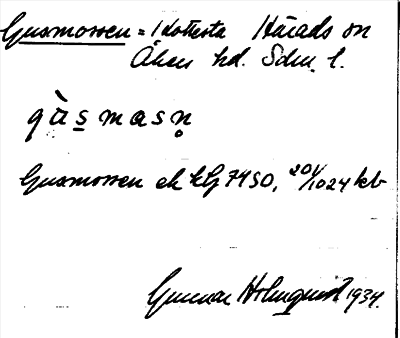 Gusmossen = i Kottersta Härads sn
Åkers hd. Södm. l.
gùs̲masn̥
Gusmossen ek kbg 7450, 20¼/1024 kb
Gunnar Holmquist 1934.